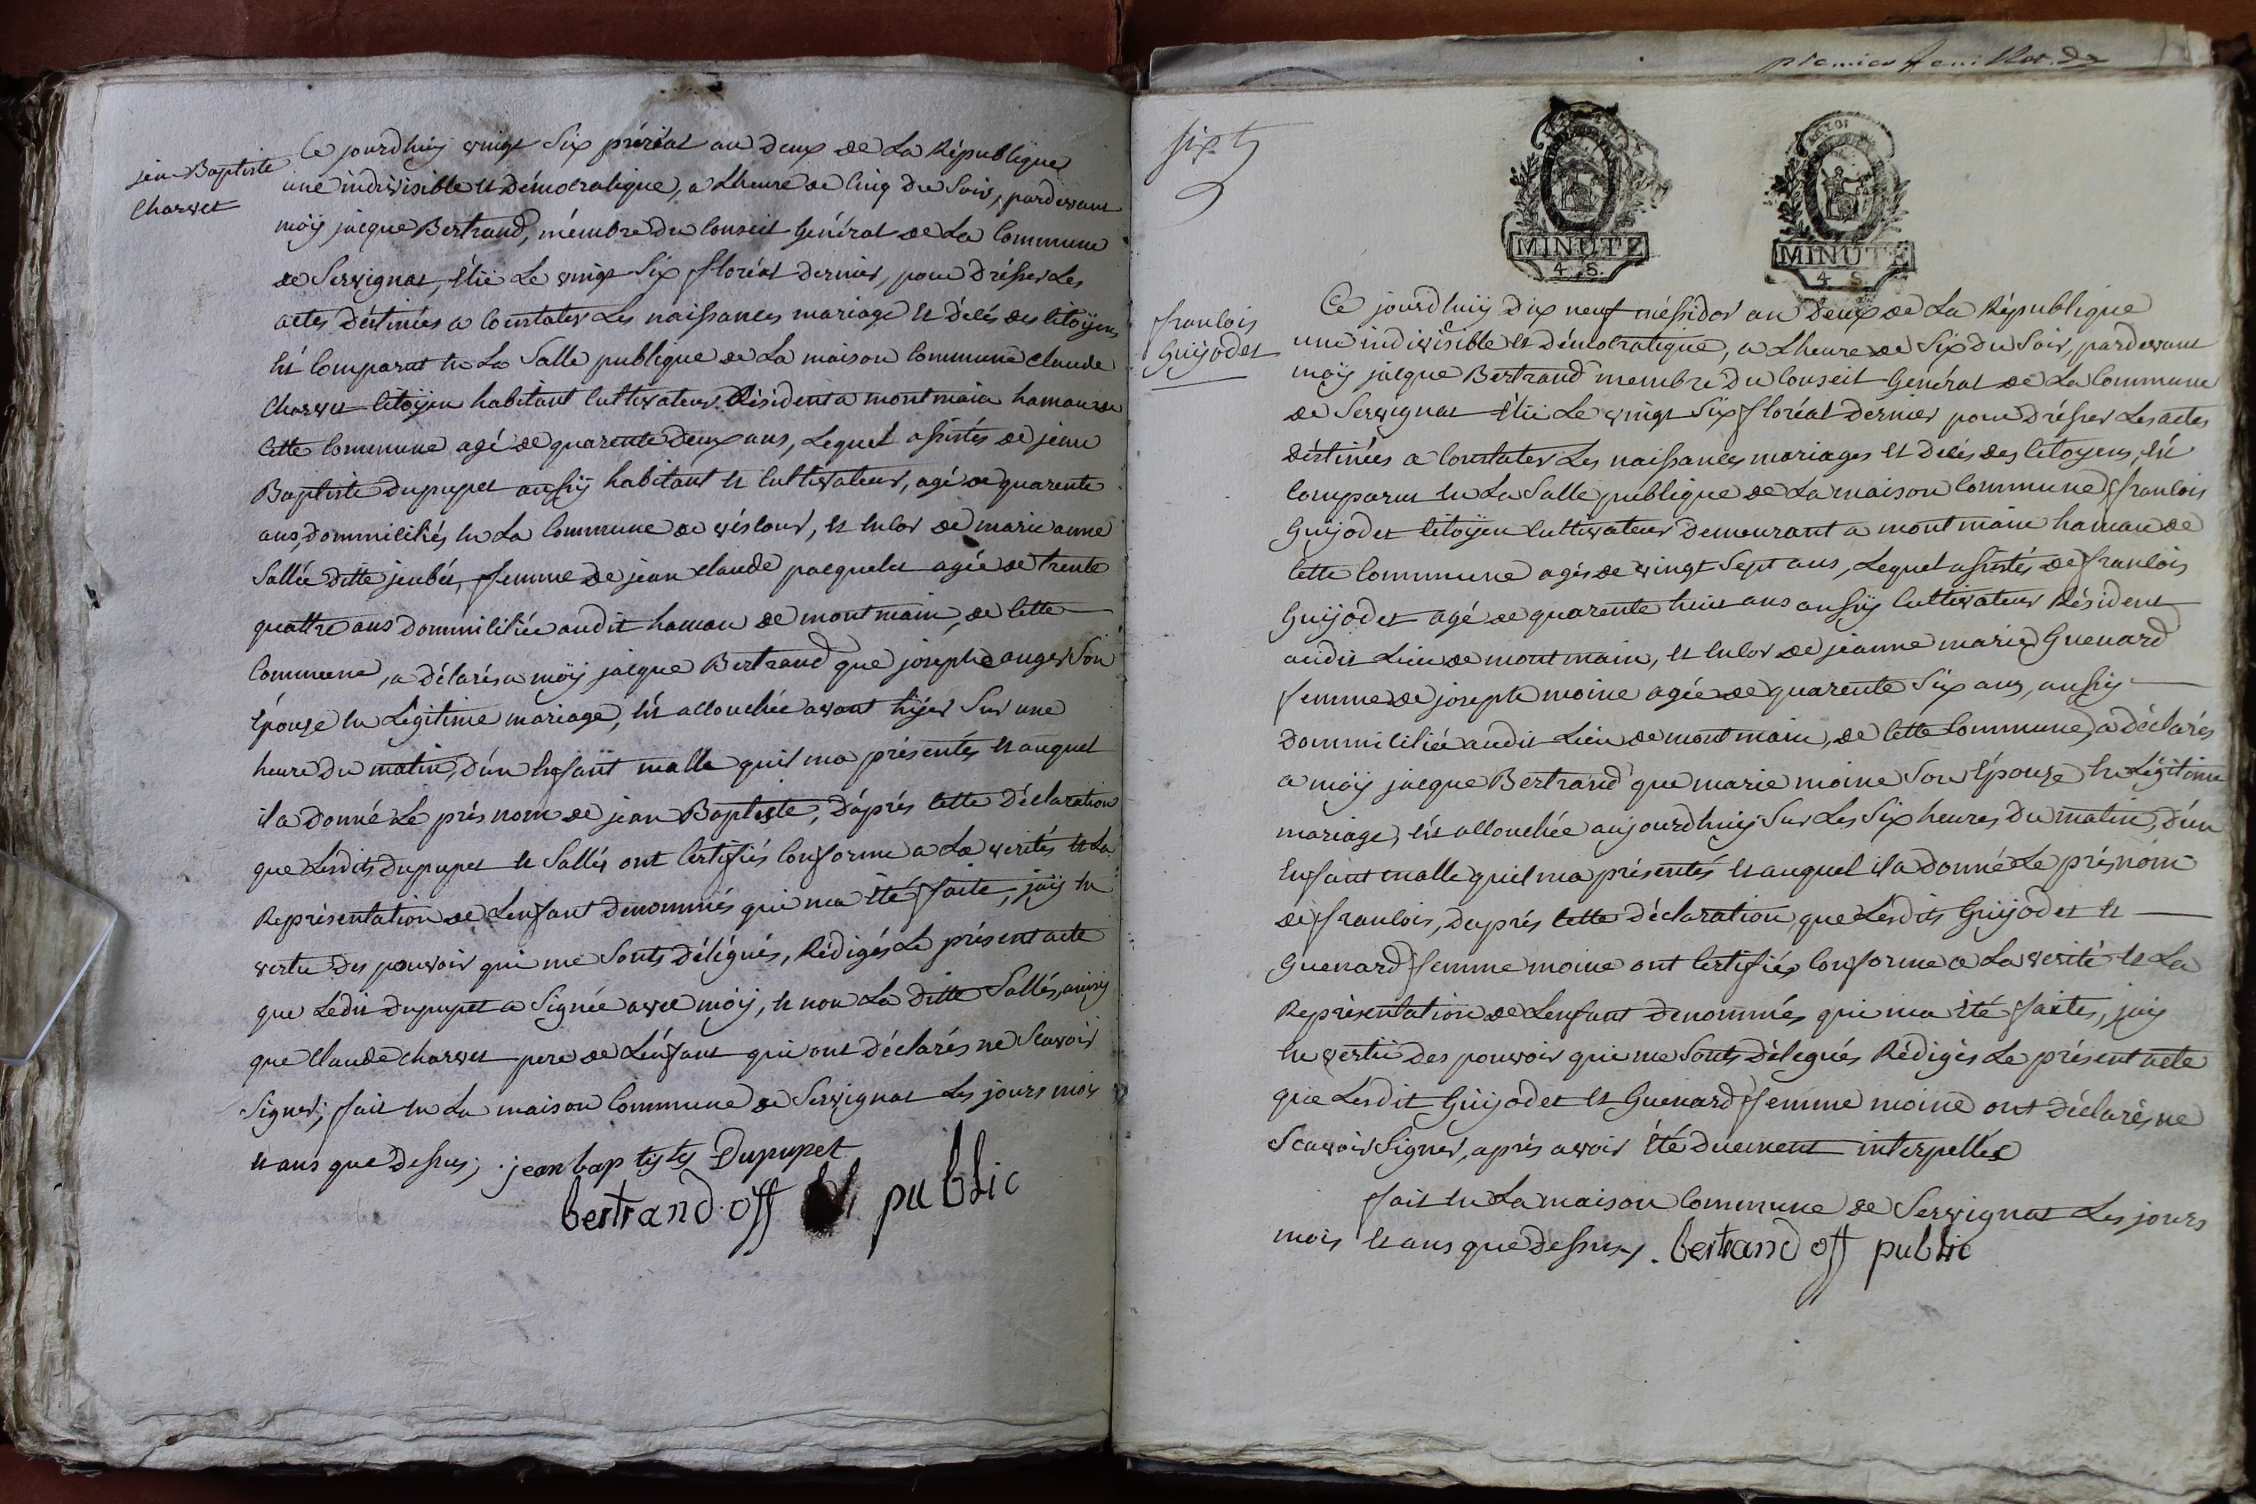 jean Baptiste
Charvet
Ce jourdhuij vingt Six prérial an deux de La République
une indivisible et Démocratique, a Lheure de Cinq Du Soir, pardevant
moÿ jacque Bertrand, mémbre du Conseil Général de La Commune
de Servignat, élü Le vingt Six floréal dernier, pour drésser Les
actes déstinées a Constater Les naissances mariage et décés des Citoÿens
ést Comparut en La Salle publique de La maison Commune Claude
Charvet Citoÿen habitant Cultivateur Résident a montmain hamau de
Cette Commune agé de quarente deux ans, Lequel assistés de jean
Baptiste Dupupet aussÿ habitant et Cultivateur, agé de quarente
ans, dommiciliés en La Commune de véscour, et encor de marie anne
Sallée ditte jeubée, femme de jean Claude pacquelet agée de trente
quattre ans dommiciliée audit hamau de montmain, de Cette
Commune, a Déclarés a moÿ jacque Bertrand que josephe auger Son
épouze en Légitime mariage, ést accouchée avant hÿer Sur une
heure du matin, d'un enfant malle quil ma présentés et auquel
il a donné Le présnom de jean Baptiste, d'áprés Cette Déclaration
que Lesdits Dupupet et Sallés ont Certifiés Conforme a La verités et La
Représentation de Lenfant denommés qui ma été faite, jaÿ en
vertu des pouvoir qui me Sonts délégués, Rédigés Le présent acte
que Lédit dupupet a Signée avec moÿ, et non La ditte Sallés, ainsÿ
que Claude charvet pere de Lénfant qui ont déclarés ne Scavoir
Signer; fait en La maison Commune de Servignat Les jours mois
et ans que dessus; jean baptistes Dupupet
bertrand off public
premier feuillet
six
MINUTE
4. S.
MINUTE
4 S
francois
Guijodet
Ce jourdhuij dix neuf méssidor an deux de La République
une indivisible et démocratique, a Lheure de Six du Soir, pardevant
moÿ jacque Bertrand membre Du Conseil Général de La Commune
de Servignat élü Le vingt Six floréal dernier pour drésser Les actes
déstinées a Constater Les naissances mariages et décés des Citoyens, ést
Comparut en La Salle publique de La maison Commune francois
Guijodet Citoÿen Cultivateur demeurant a montmain hamau de
Cette Commune agés de vingt Sept ans, Lequel assistés de francois
Guijodet agé de quarente huit ans aussÿ Cultivateur Résident
audit Lieu de montmain, et encor de jeanne marie Guenard
femme de joseph moine agée de quarente Six ans, aussÿ
dommiciliée audit Lieu de montmain, de Cette Commune, a déclarés
a moÿ jacque Bertrand que marie moine Son épouze en Légitime
mariage, ést accouchée aujourdhuij Sur Les Six heures du matin, d'un
enfant malle quil ma présentés et auquel il a donné Le présnom
de francois, daprés Cette déclaration que Lésdits Guijodet et
Guenard femme moine ont Certifiés Conforme a La verité et La
Représentation de Lenfant denommés qui ma été faites, jaÿ
en vertu des pouvoir qui me Sonts délegués Rédigés Le présent acte
que Lésdit Guijodet et Guenard femme moine ont déclarés ne
Scavoir Signer, aprés avoir été duement interpellée
fait en La maison Commune de Servignat Les jours
mois et ans que dessus. bertrand off public